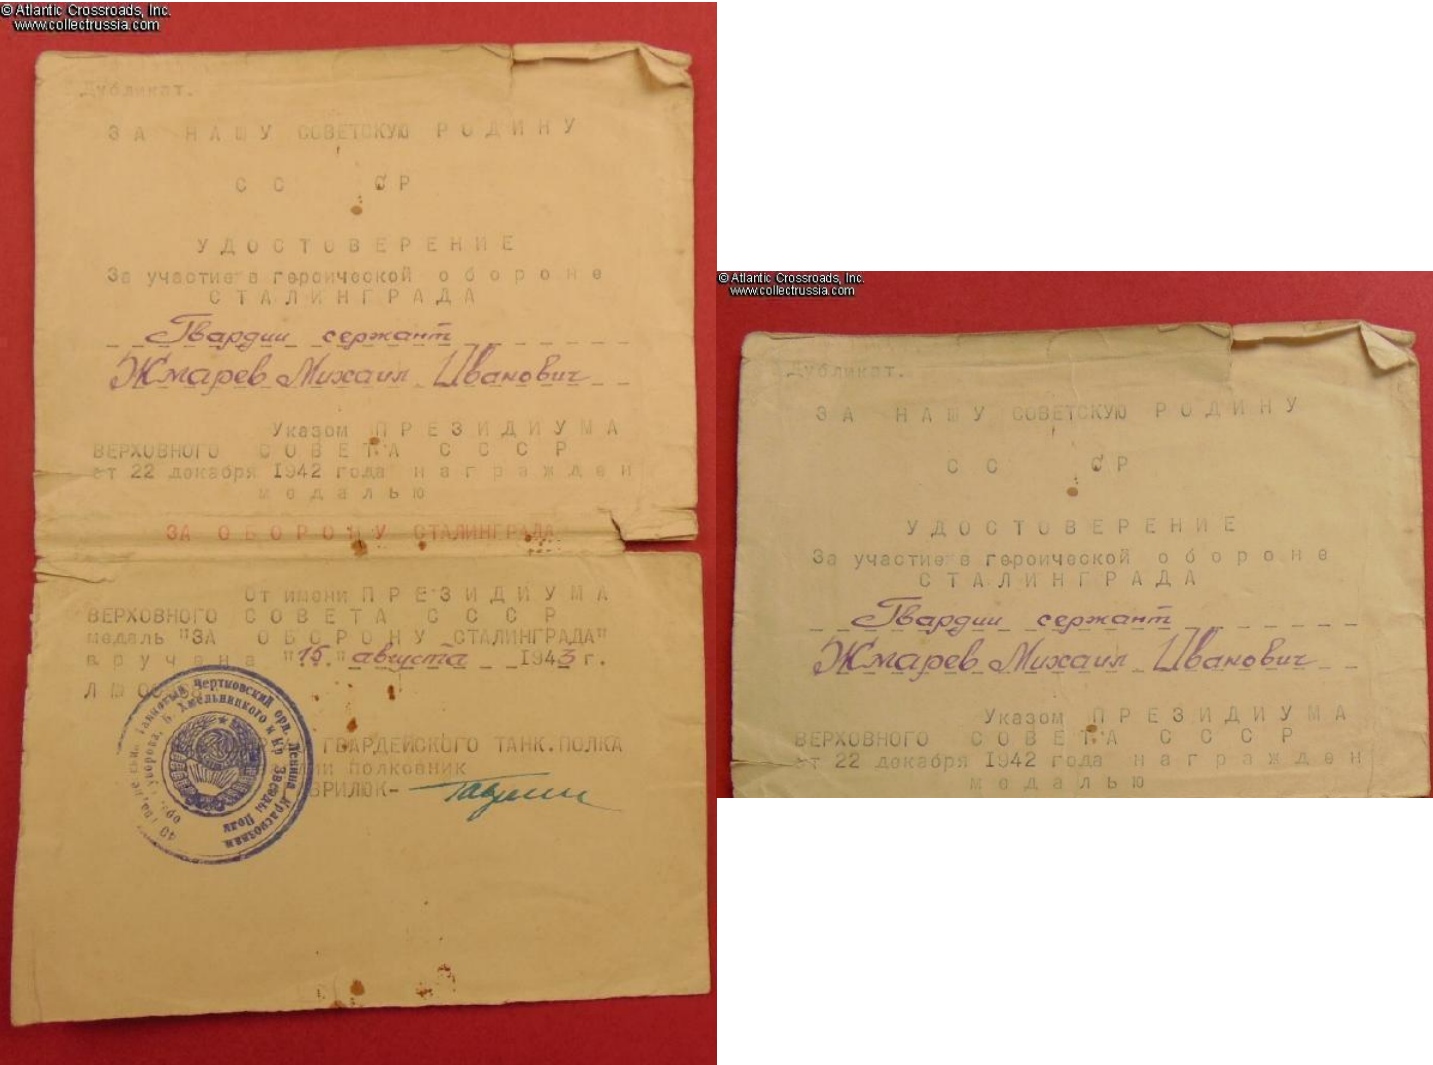 © Atlantic Crossroads, Inc.
www.collectrussia.com
Дубликат.
ЗА НАШУ СОВЕТСКУЮ РОДИНУ
СС СР
УДОСТОВЕРЕНИЕ
За участие в героической обороне
СТАЛИНГРАДА
Гвардии сержант
Жмарев Михаил Иванович
Указом ПРЕЗИДИУМА
ВЕРХОВНОГО СОВЕТА СССР
от 22 декабря 1942 года награжден
медалью
ЗА ОБОРОНУ СТАЛИНГРАДА
От имени ПРЕЗИДИУМА
ВЕРХОВНОГО СОВЕТА СССР
медаль "ЗА ОБОРОНУ СТАЛИНГРАДА"
вручена "15" августа 1943 г.
ГВАРДЕЙСКОГО ТАНК.ПОЛКА
ИИ ПОЛКОВНИК
ВРИЛЮК-
Чертковский орд. Ленина Краснознам.
Б. Хмельницкого и Кр. Звезды Полк
© Atlantic Crossroads, Inc.
www.collectrussia.com
Дубликат.
ЗА НАШУ СОВЕТСКУЮ РОДИНУ
СС СР
УДОСТОВЕРЕНИЕ
За участие в героической обороне
СТАЛИНГРАДА
Гвардии сержант
Жмарев Михаил Иванович
Указом ПРЕЗИДИУМА
ВЕРХОВНОГО СОВЕТА СССР
от 22 декабря 1942 года награжден
медалью